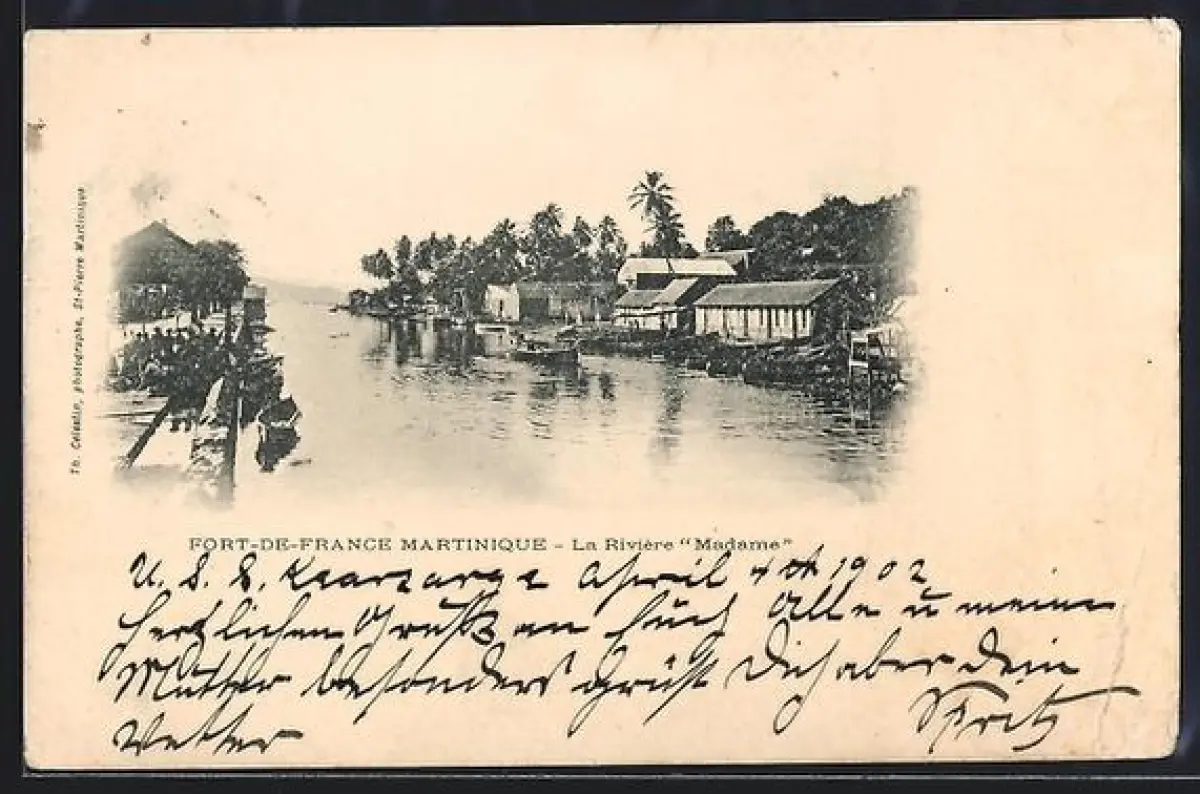 Th. Celestin, photographe, St-Pierre Martinique
FORT-DE-FRANCE MARTINIQUE - La Rivière "Madame"
U. S. S. Kearsarge April 4th 1902
Herzlichen Gruß an Euch Alle u meine
Mutter besonders grüßt Dich aber dein
Vetter Fritz